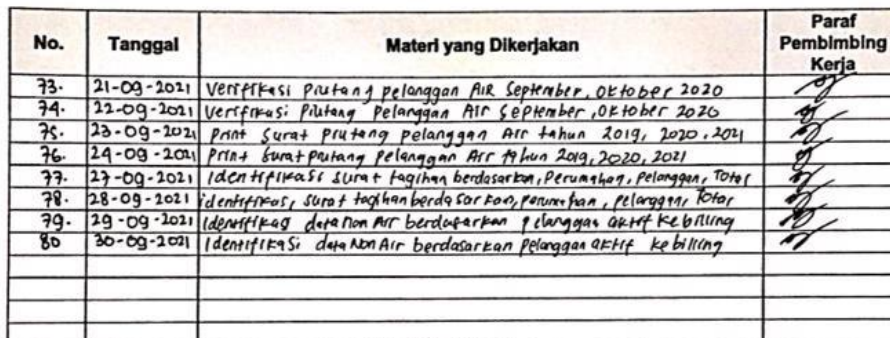 No. Tanggal Materi yang Dikerjakan Paraf Pembimbing Kerja
73. 21-09-2021 Verifikasi Piutang pelanggan AIR September, Oktober 2020
74. 22-09-2021 Verifikasi Piutang Pelanggan Air September, Oktober 2020
75. 23-09-2021 Print Surat piutang pelanggan Air tahun 2019, 2020, 2021
76. 24-09-2021 Print Surat piutang Pelanggan Air tahun 2019, 2020, 2021
77. 27-09-2021 Identifikasi surat tagihan berdasarkan, Perumahan, Pelanggan, Total
78. 28-09-2021 identifikasi, surat tagihan berdasarkan, perumahan, pelanggan, Total
79. 29-09-2021 Identifikasi data Non Air berdasarkan pelanggan aktif ke billing
80 30-09-2021 Identifikasi data Non Air berdasarkan pelanggan aktif ke billing